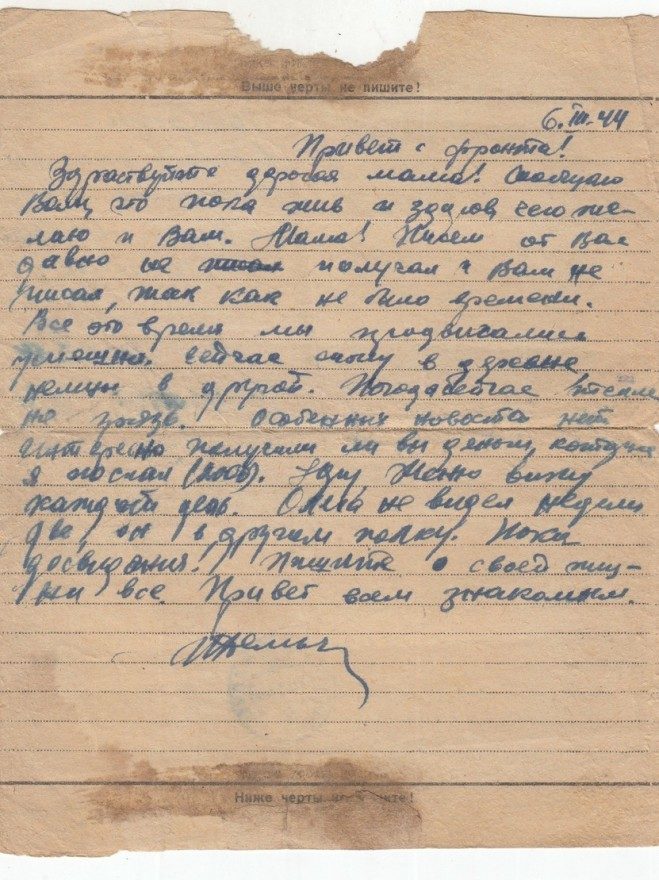 Выше черты не пишите!
6.III-44
Привет с фронта!
Здраствуйте дорогая мама! Сообщаю
Вам, что пока жив и здоров, чего же-
лаю и Вам. Мама! Писем от Вас
давно не писал получал и Вам не
писал, так как не было времени.
Все это время мы продвигались
успешно. Сейчас стоим в деревне,
немцы в другой. Погода сейчас
но грязь. Особенных новостей нет
Интересно получили ли вы деньги, которые
я послал. Женю вижу
каждый день. не видел недели
две, он в другом полку. Пока
досвидания! Пишите о своей жиз-
ни все. Привет всем знакомым.
Ниже черты не пишите!